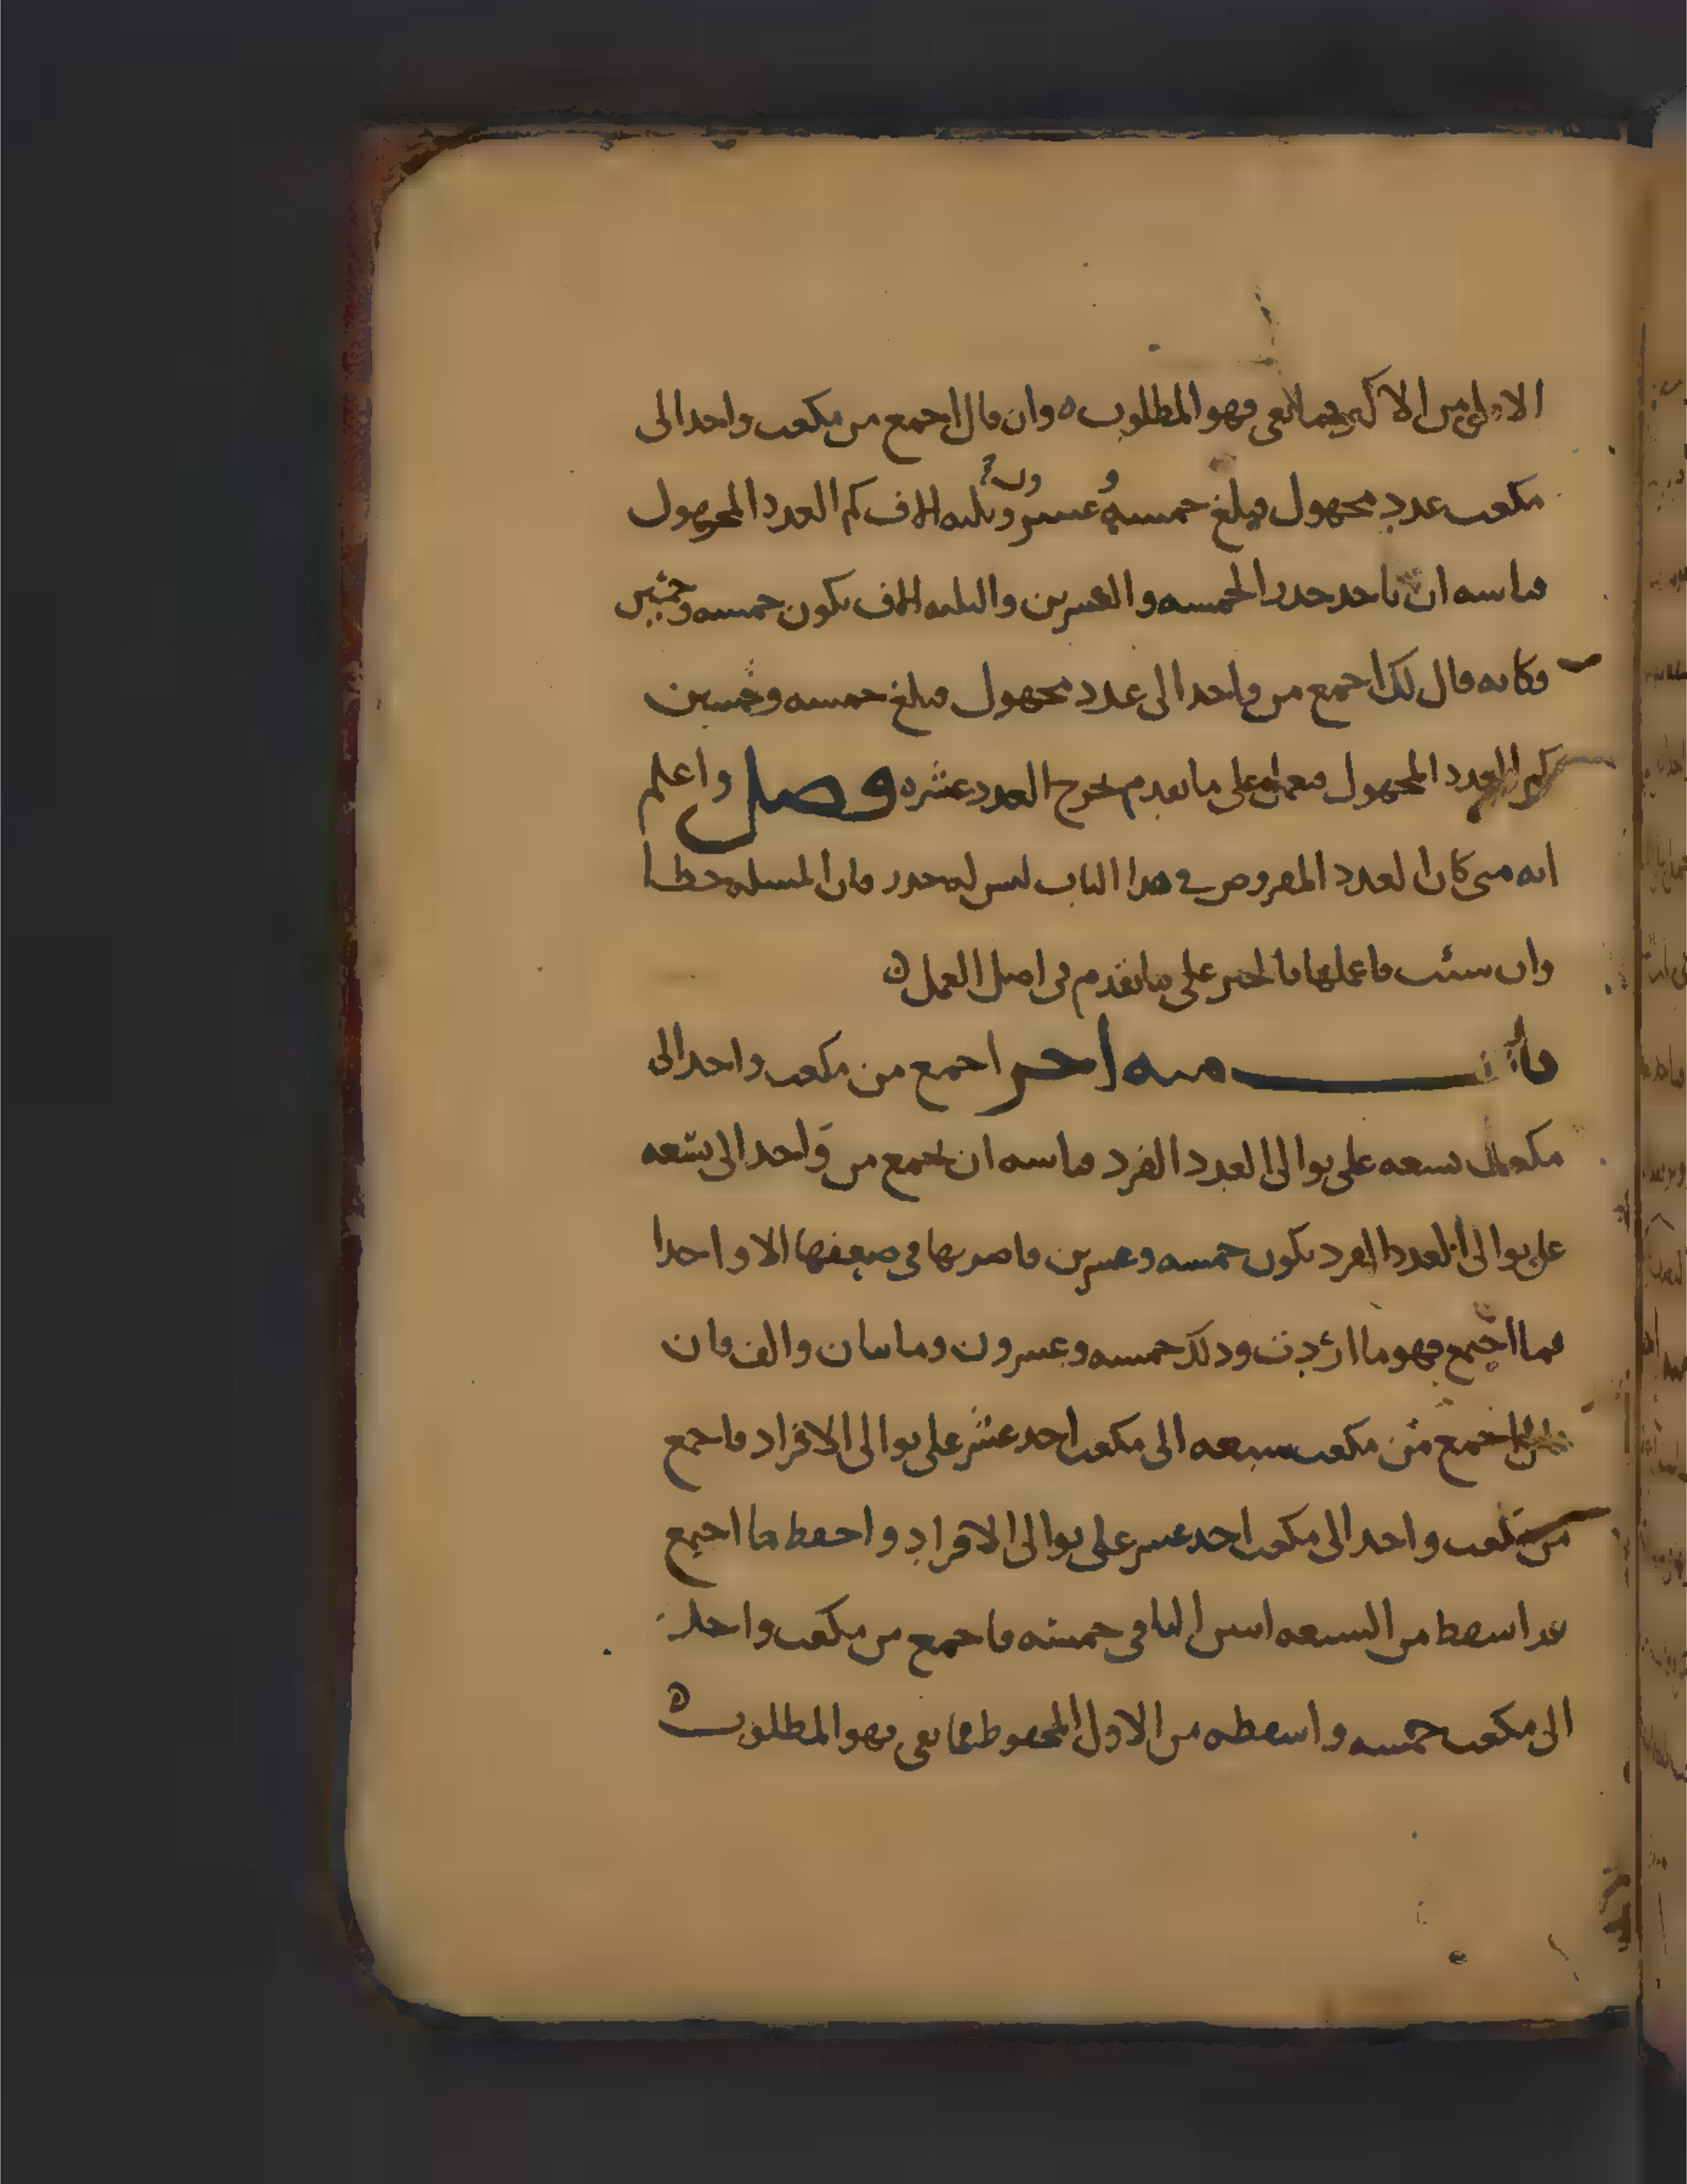 الاول من الاكبر فما بقى فهو المطلوب ه وان قال اجمع من مكعب واحد الى
مكعب عدد مجهول فبلغ خمسه وعشرون وثلثه الاف كم العدد المجهول
قياسه ان تاخد جدر الخمسه والعشرين والثلثه الاف يكون خمسه وخمسين
فكانه قال لك اجمع من واحد الى عدد مجهول فبلغ خمسه وخمسين
كم العدد المجهول فعمله على ما تقدم يخرج العدد عشره فصل واعلم
انه متى كان العدد المفروض في هدا الباب ليس له جدر فان المسله خطا
وان شئت فاعملها بالجبر على ما تقدم في اصل العمل ه
باب منه اخر اجمع من مكعب واحد الى
مكعب تسعه على توالى العدد الفرد قياسه ان تجمع من واحد الى تسعه
على توالى العدد الفرد يكون خمسه وعشرين فاضربها في ضعفها الا واحدا
فما اجتمع فهو ما اردت ودلك خمسه وعشرون ومايتان والف فان
اجمع من مكعب سبعه الى مكعب احد عشر على توالى الافراد فاجمع
من مكعب واحد الى مكعب احد عشر على توالى الافراد واحفظ ما اجتمع
اسقط من السبعه اثنين الباقي خمسه فاجمع من مكعب واحد
الى مكعب خمسه واسقطه من الاول المحفوظ فما بقى فهو المطلوب ه